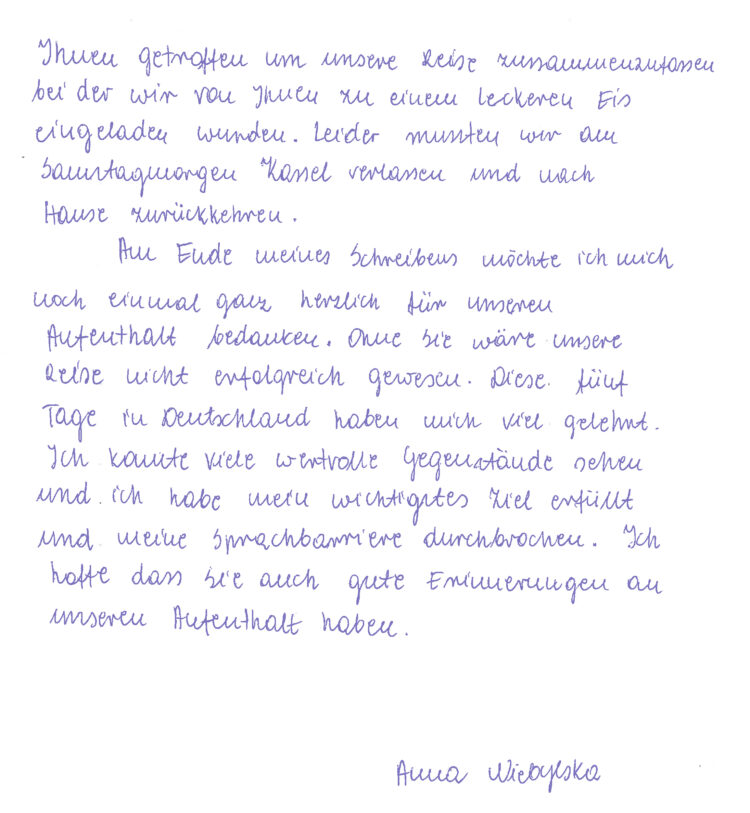 Ihnen getroffen um unsere Reise zusammenzufassen
bei der wir von Ihnen zu einem leckeren Eis
eingeladen wurden. Leider mussten wir am
Samstagmorgen Kassel verlassen und nach
Hause zurückkehren.
Am Ende meines Schreibens möchte ich mich
noch einmal ganz herzlich für unseren
Aufenthalt bedanken. Ohne Sie wäre unsere
Reise nicht erfolgreich gewesen. Diese fünf
Tage in Deutschland haben mich viel gelehrt.
Ich konnte viele wertvolle Gegenstände sehen
und ich habe mein wichtigstes Ziel erfüllt
und meine Sprachbarriere durchbrochen. Ich
hoffe dass Sie auch gute Erinnerungen an
unseren Aufenthalt haben.
Anna